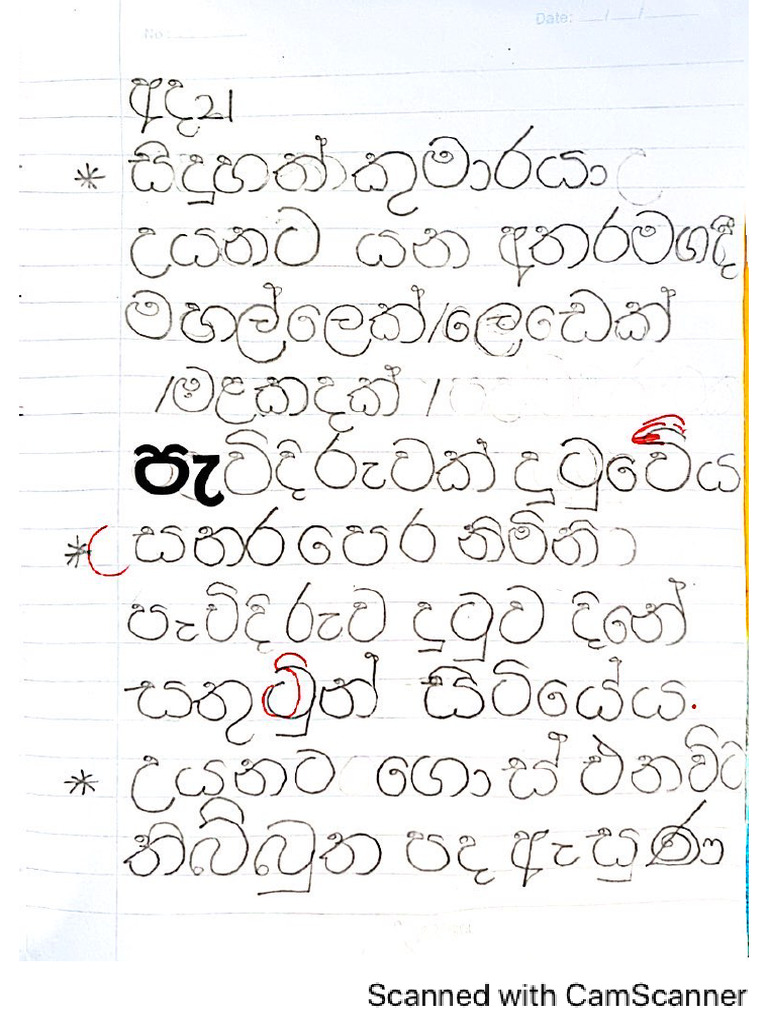 No:
Date: __/__/__
අද්‍ය
* සිදුහත් කුමාරයා
උයනට යන අතරමගදී
මහල්ලෙක්/ලෙඩෙක්
/මළකදක් /
පැවිදිරුවක් දුටුවේය
* සතරපෙර නිමිති
පැවිදිරුව දුටුව දිනේ
සතුටුන් සිටියේය.
* උයනට ගොස් එනවිට
නිබ්බුත පද ඇසුණ
Scanned with CamScanner